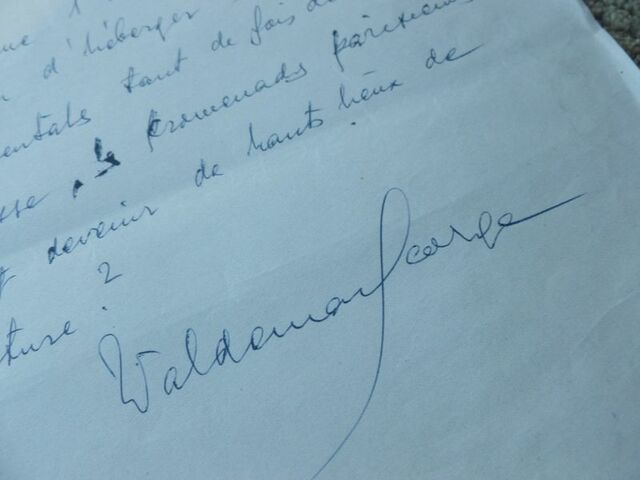 d'héberger
tant de fois
promenads parisiens
devenir de hauts lieux de
ture ?
Waldemar George